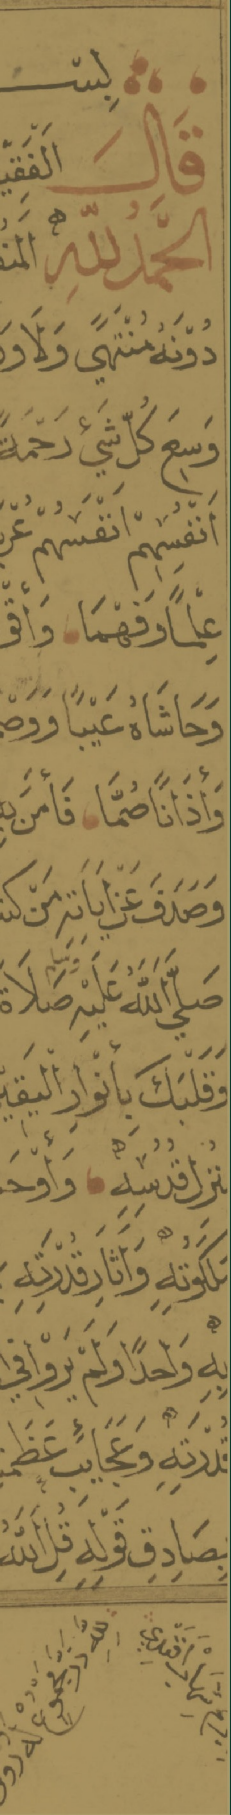 بِسْـ
قَالَ الْفَقِيـ
الْحَمْدُ لِلّٰهِ الْمُنـ
دُونَهُ مُنْتَهًى وَلَا وَرَ
وَسِعَ كُلَّ شَيْءٍ رَحْمَةً
أَنْفُسِهِمْ أَنْفَسَهُمْ عُرْ
عِلْمًا وَفَهْمًا وَأَقْوَ
وَحَاشَاهُ عَيْبًا وَوَصْـ
وَأٰذَانًا صُمًّا فَأٰمَنَ بِهِ
وَصَدَفَ عَنْ أٰيَاتِهِ مَنْ كَتـ
صَلَّى اللّٰهُ عَلَيْهِ وَسَلَّمَ صَلَاةً
وَقَلْبَكَ بِأَنْوَارِ الْيَقِيـ
نُزُلِ قُدْسِهِ وَأَوْحَـ
مَلَكُوتِهِ وَأٰثَارِ قُدْرَتِهِ
بِهِ وَاحِدًا وَلَمْ يَرَوْا فِي
قُدْرَتِهِ وَعَجَايِبِ عَظَمَـ
بِصَادِقِ قَوْلِهِ قُلِ اللّٰهُ